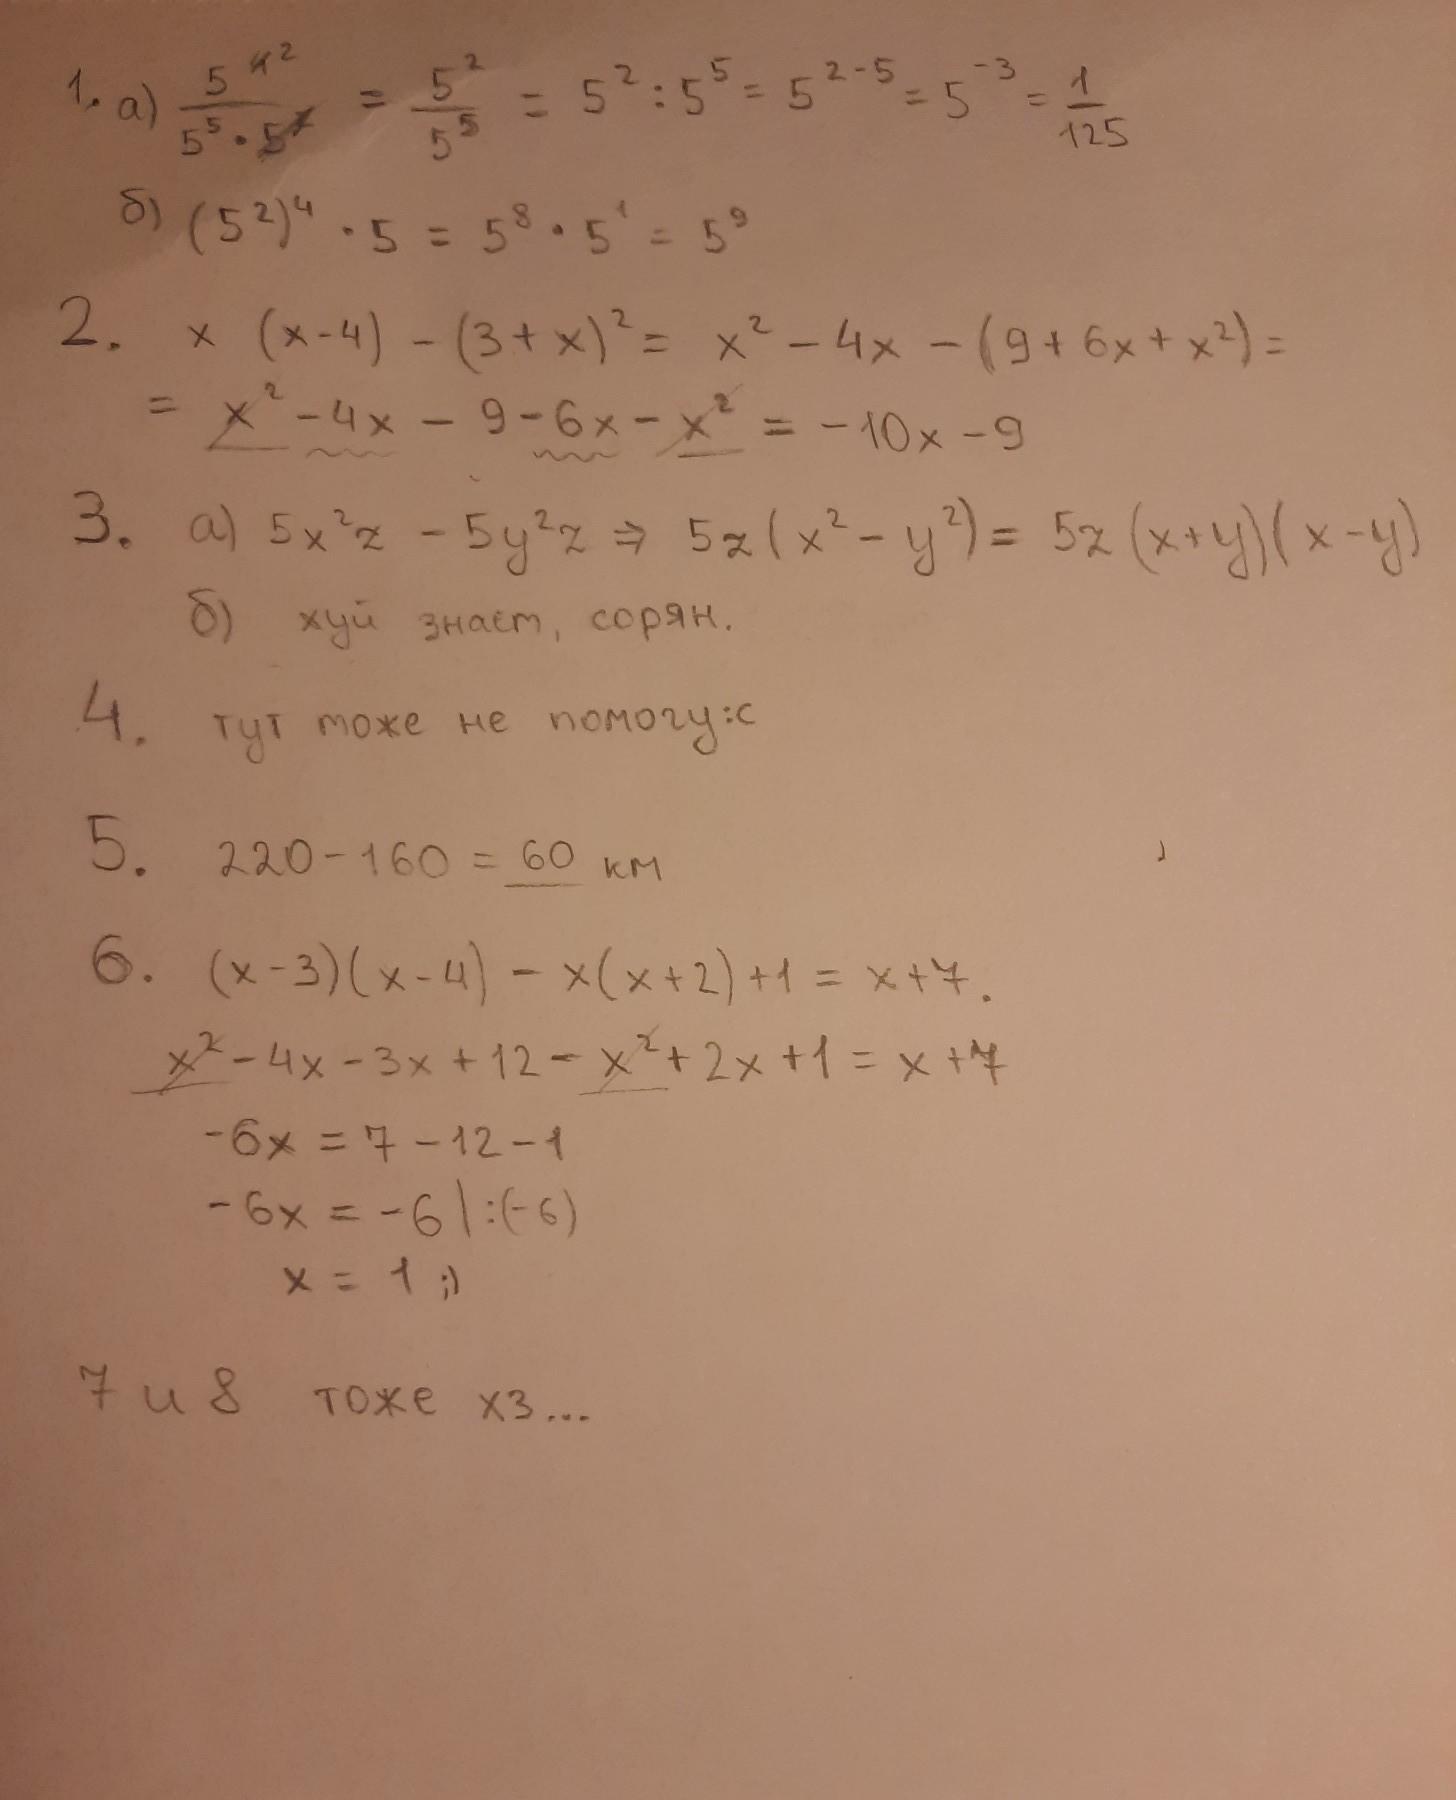 1. а) 5^4^2 / 5^5 · 5^2 = 5^2 / 5^5 = 5^2 : 5^5 = 5^2-5 = 5^-3 = 1/125
б) (5^2)^4 · 5 = 5^8 · 5^1 = 5^9
2. x (x-4) - (3+x)^2 = x^2 - 4x - (9+6x+x^2) =
= x^2 - 4x - 9 - 6x - x^2 = -10x - 9
3. а) 5x^2z - 5y^2z ⇒ 5z(x^2 - y^2) = 5z(x+y)(x-y)
б) хуй знает, сорян.
4. тут тоже не помогу:с
5. 220-160 = 60 км
6. (x-3)(x-4) - x(x+2)+1 = x+7.
x^2 - 4x - 3x + 12 - x^2 + 2x + 1 = x + 7
-6x = 7 - 12 - 1
-6x = -6 | :(-6)
x = 1 ;)
7 и 8 тоже хз...